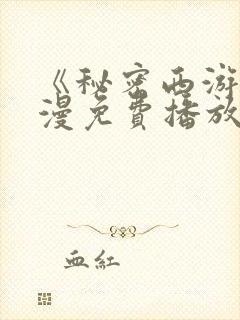 《秘密西游
漫免費播放
血紅